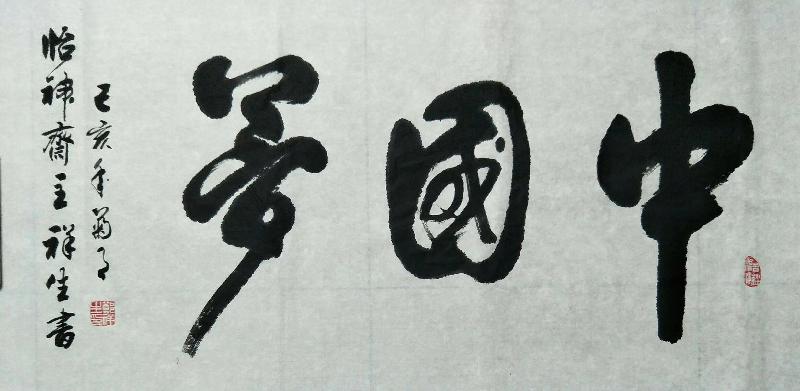 中國夢
己亥年菊月
怡神齋主祥生書